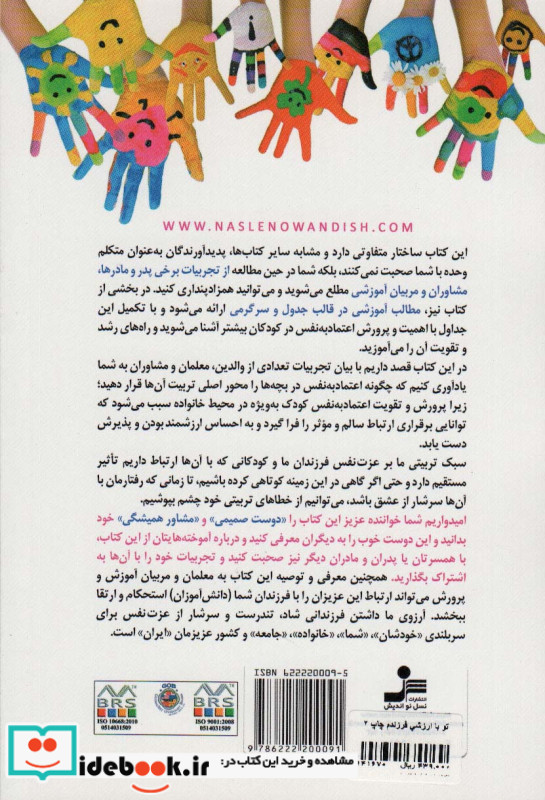 WWW.NASLENOWANDISH.COM
این کتاب ساختار متفاوتی دارد و مشابه سایر کتاب‌ها، پدیدآورندگان به‌عنوان متکلم
وحده با شما صحبت نمی‌کنند، بلکه شما در حین مطالعه از تجربیات برخی پدر و مادرها،
مشاوران و مربیان آموزشی مطلع می‌شوید و می‌توانید همزادپنداری کنید. در بخشی از
کتاب نیز، مطالب آموزشی در قالب جدول و سرگرمی ارائه می‌شود و با تکمیل این
جداول با اهمیت و پرورش اعتمادبه‌نفس در کودکان بیشتر آشنا می‌شوید و راه‌های رشد
و تقویت آن را می‌آموزید.
در این کتاب قصد داریم با بیان تجربیات تعدادی از والدین، معلمان و مشاوران به شما
یادآوری کنیم که چگونه اعتمادبه‌نفس در بچه‌ها را محور اصلی تربیت آن‌ها قرار دهید؛
زیرا پرورش و تقویت اعتمادبه‌نفس کودک به‌ویژه در محیط خانواده سبب می‌شود که
توانایی برقراری ارتباط سالم و مؤثر را فرا گیرد و به احساس ارزشمندبودن و پذیرش
دست یابد.
سبک تربیتی ما بر عزت‌نفس فرزندان ما و کودکانی که با آن‌ها ارتباط داریم تأثیر
مستقیم دارد و حتی اگر گاهی در این زمینه کوتاهی کرده باشیم، تا زمانی که رفتارمان با
آن‌ها سرشار از عشق باشد، می‌توانیم از خطاهای تربیتی خود چشم بپوشیم.
امیدواریم شما خواننده عزیز این کتاب را «دوست صمیمی» و «مشاور همیشگی» خود
بدانید و این دوست خوب را به دیگران معرفی کنید و درباره آموخته‌هایتان از این کتاب،
با همسرتان یا پدران و مادران دیگر نیز صحبت کنید و تجربیات خود را با آن‌ها به
اشتراک بگذارید. همچنین معرفی و توصیه این کتاب به معلمان و مربیان آموزش و
پرورش می‌تواند ارتباط این عزیزان را با فرزندان شما (دانش‌آموزان) استحکام و ارتقا
ببخشد. آرزوی ما داشتن فرزندانی شاد، تندرست و سرشار از عزت‌نفس برای
سربلندی «خودشان»، «شما»، «خانواده»، «جامعه» و کشور عزیزمان «ایران» است.
ISBN 622220009-5
9 786222 200091
BRS
ISO 10668:2010
0514031509
BRS
ISO 9001:2008
0514031509
انتشارات
نسل نو اندیش
تو با ارزشی فرزندم چاپ ۲
۴۳۹,۰۰۰ ریال
مشاهده و خرید این کتاب در:
idebook.ir